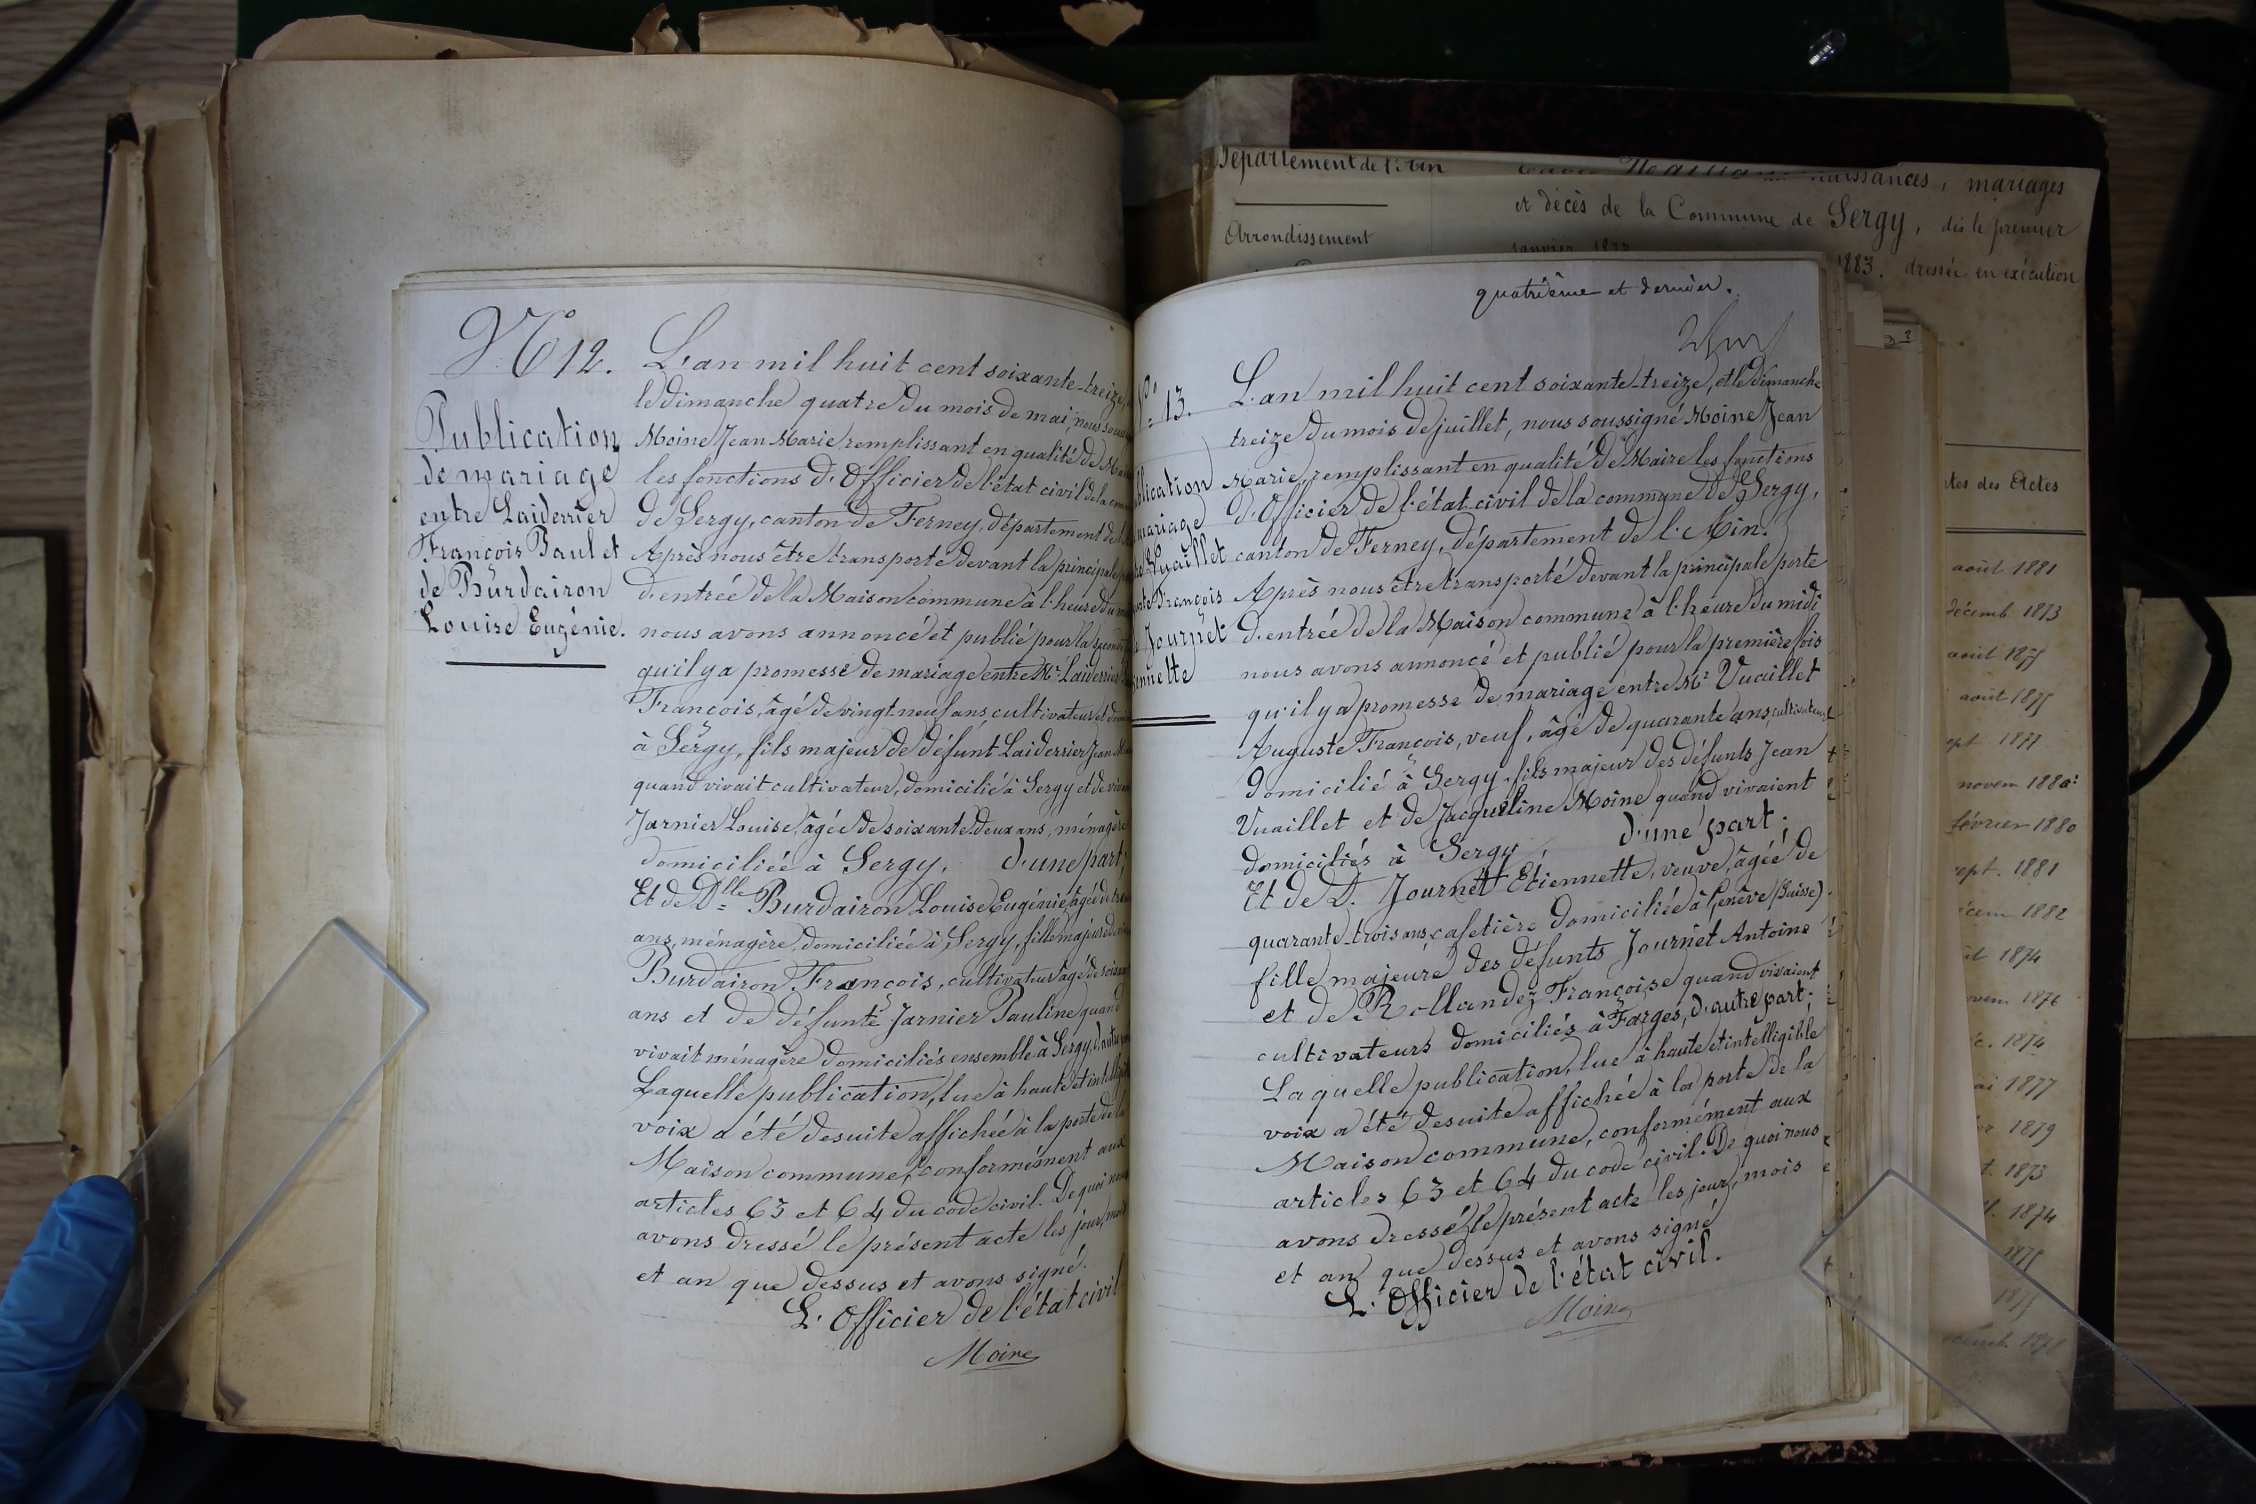 N° 12.
Publication
de mariage
entre Laiderrier
François Paul et
de Burdairon
Louise Eugénie.
L'an mil huit cent soixante-treize,
le dimanche quatre du mois de mai, nous
Moine Jean Marie remplissant en qualité de
les fonctions d'Officier de l'état civil de la
de Sergy, canton de Ferney, département de
Après nous être transporté devant la principale
d'entrée de la Maison commune à l'heure du
nous avons annoncé et publié pour la
qu'il y a promesse de mariage entre Mr Laiderrier
François, âgé de vingt neuf ans, cultivateur et
à Sergy, fils majeur de défunt Laiderrier Jean
quand vivait cultivateur, domicilié à Sergy et de
Jarnier Louise, âgée de soixante deux ans, ménagère
domiciliée à Sergy, d'une part;
Et de Dlle Burdairon Louise Eugénie, âgée de
ans, ménagère, domiciliée à Sergy, fille majeure
Burdairon François, cultivateur âgé de
ans et de défunte Jarnier Pauline quand
vivait ménagère domiciliés ensemble à Sergy,
Laquelle publication, lue à haute et
voix a été desuite affichée à la porte de la
Maison commune, conformément aux
articles 63 et 64 du code civil. De quoi
avons dressé le présent acte les jour,
et an que dessus et avons signé.
L'Officier de l'état civil
Moine
quatrième et dernier.
13.
mariage
Vuaillet
François
Journet
L'an mil huit cent soixante-treize, et le dimanche
treize du mois de juillet, nous soussigné Moine Jean
Marie, remplissant en qualité de Maire les fonctions
d'Officier de l'état civil de la commune de Sergy,
canton de Ferney, département de l'Ain.
Après nous être transporté devant la principale porte
d'entrée de la Maison commune à l'heure du midi
nous avons annoncé et publié pour la première fois
qu'il y a promesse de mariage entre Mr Vuaillet
Auguste François, veuf, âgé de quarante ans, cultivateur
domicilié à Sergy, fils majeur des défunts Jean
Vuaillet et de Jacqueline Moine quand vivaient
domiciliés à Sergy d'une part;
Et de D. Journet Etiennette, veuve, âgée de
quarante-trois ans, cafetière domiciliée à Genève (Suisse).
fille majeure des défunts Journet Antoine
et de Rollandez Françoise quand vivaient
cultivateurs domiciliés à Farges, d'autre part;
Laquelle publication, lue à haute et intelligible
voix a été desuite affichée à la porte de la
Maison commune, conformément aux
articles 63 et 64 du code civil. De quoi nous
avons dressé le présent acte les jour, mois
et an que dessus et avons signé
L'Officier de l'état civil.
Moine
Département de l'Ain
Arrondissement
naissances, mariages
et décès de la Commune de Sergy, dès le premier
1883. dressée en exécution
des Actes
août 1881
décemb 1873
août 1875
août 1875
1877
novem 1880
février 1880
sept. 1881
1882
1874
1876
1874
1877
1879
1873
1874